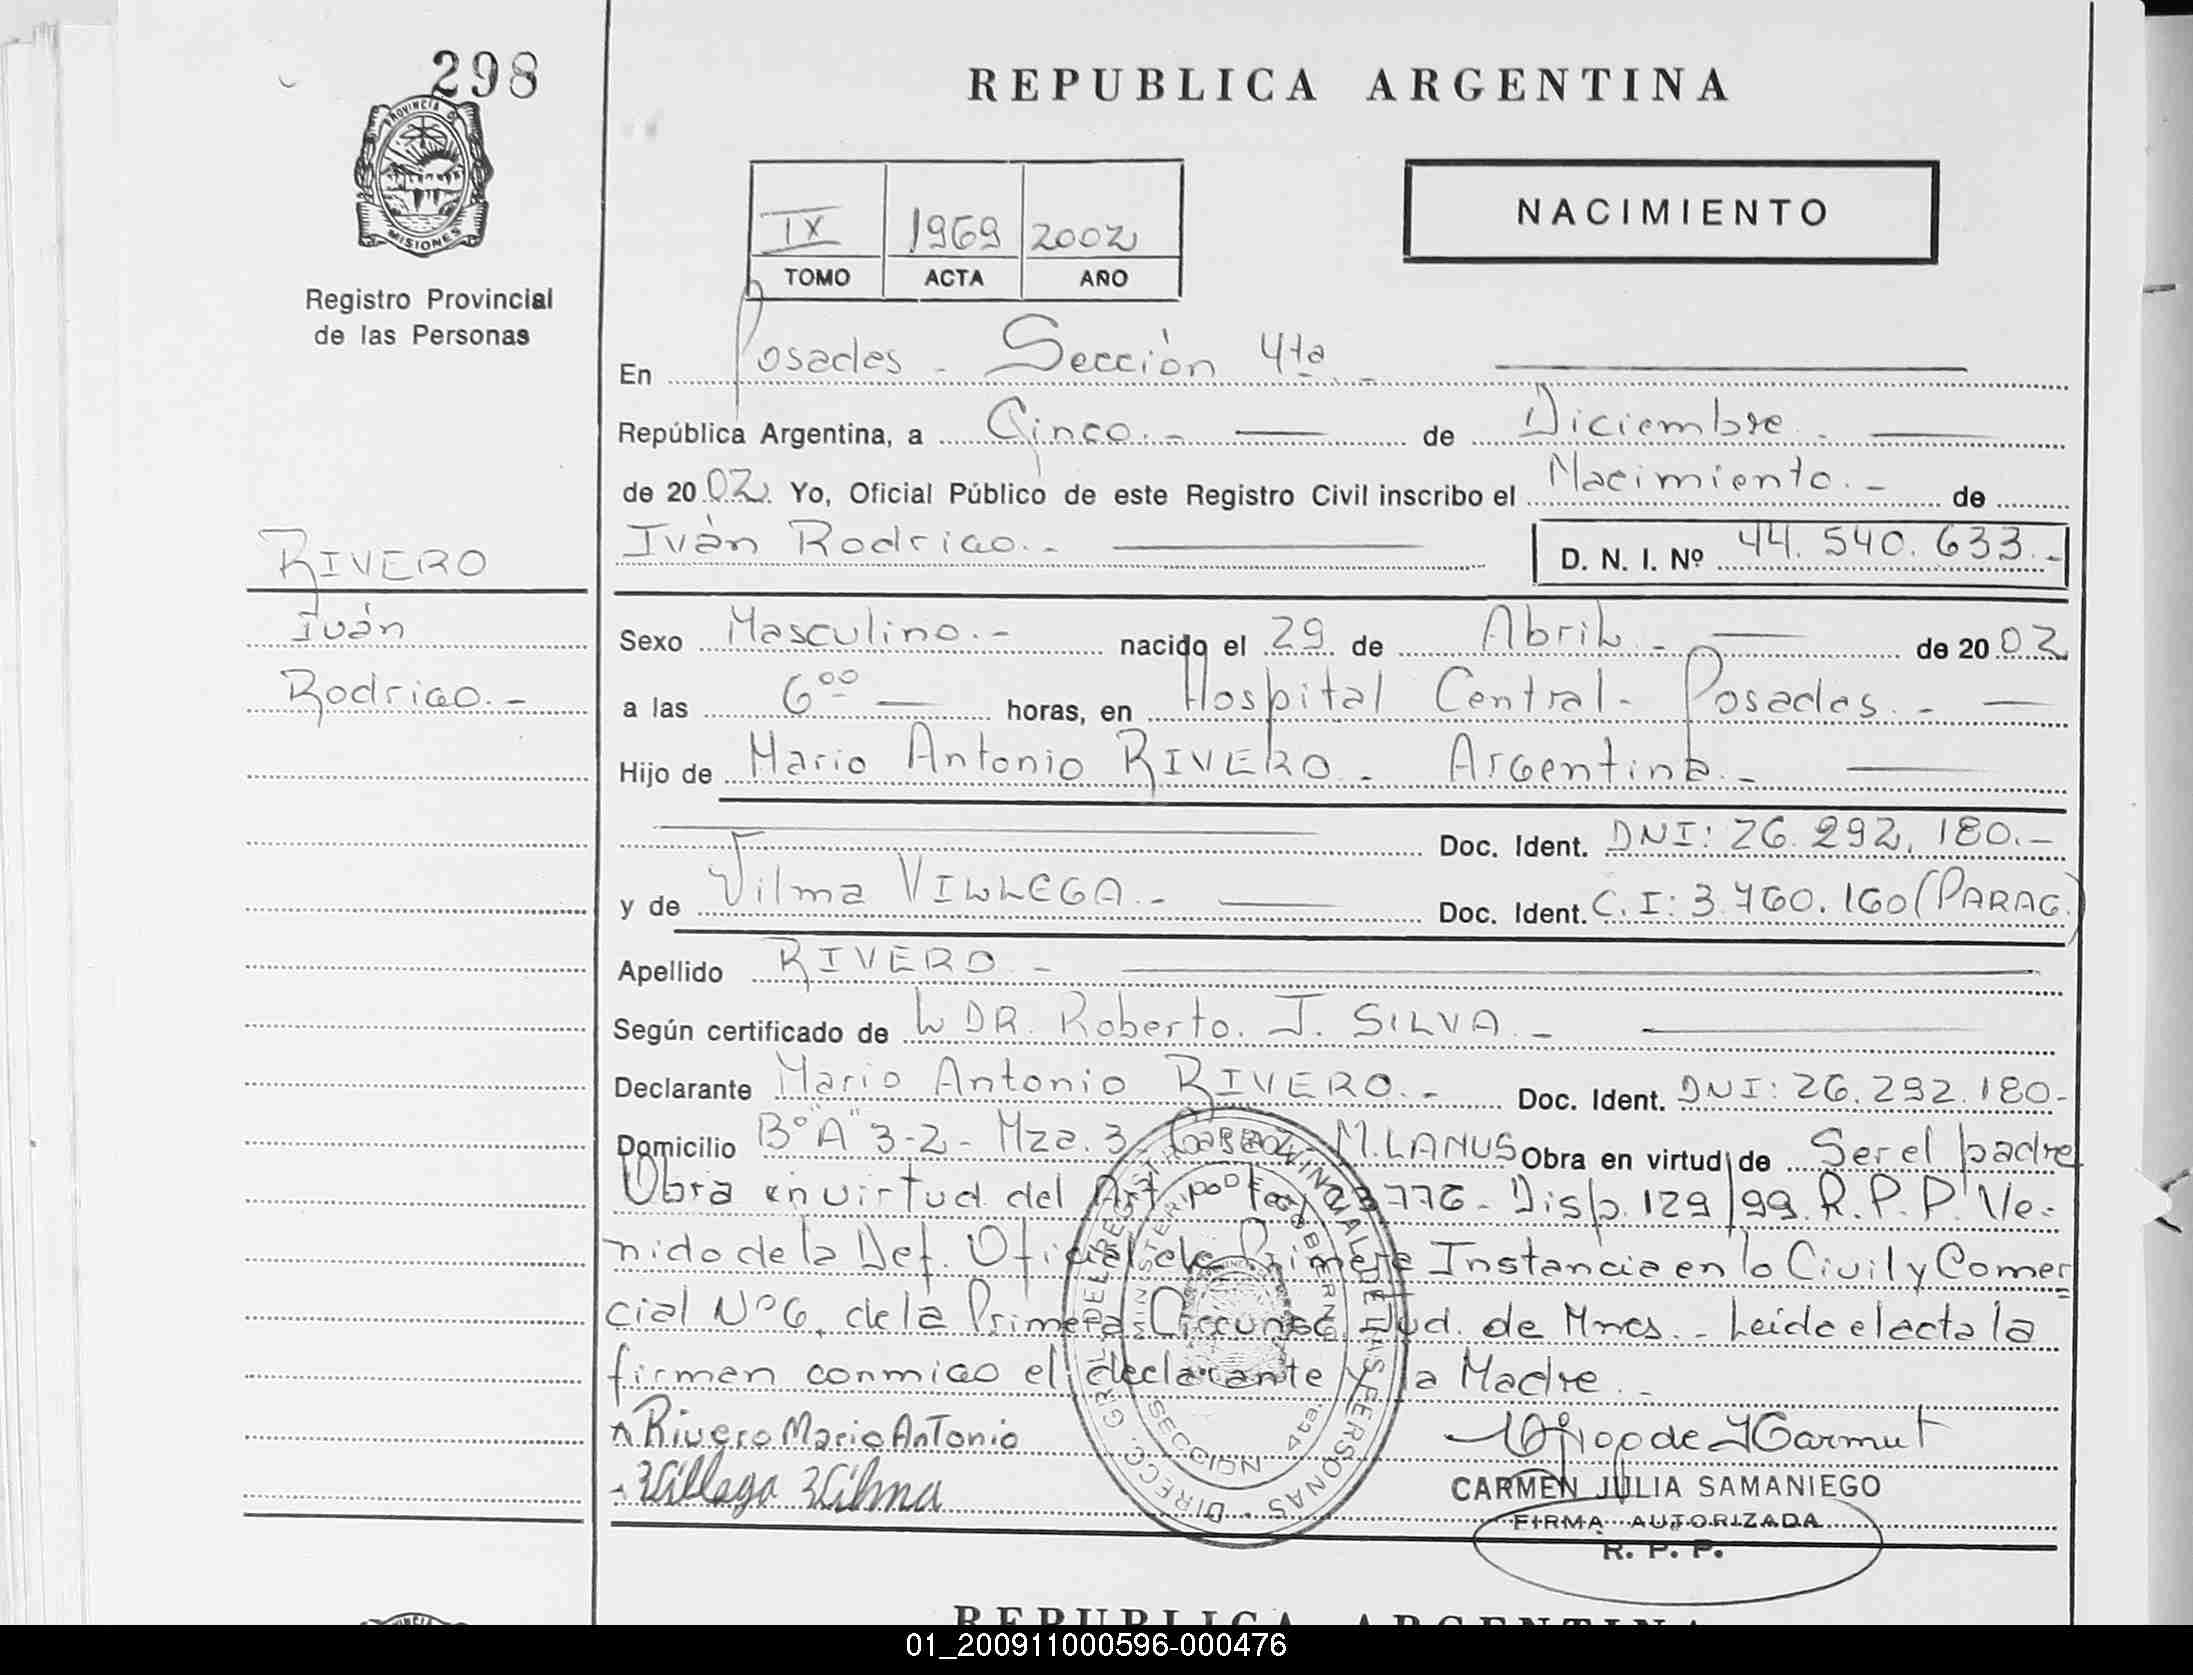 298
PROVINCIA DE
MISIONES
Registro Provincial
de las Personas
RIVERO
Iván
Rodrigo.-
REPUBLICA ARGENTINA
NACIMIENTO
IX 1969 2002
TOMO ACTA AÑO
En Posadas - Sección 4ta.-
República Argentina, a Cinco.- de Diciembre.-
de 2002. Yo, Oficial Público de este Registro Civil inscribo el Nacimiento.- de
Iván Rodrigo.- D. N. I. Nº 44.540.633.-
Sexo Masculino.- nacido el 29 de Abril.- de 2002
a las 6 00 horas, en Hospital Central - Posadas.-
Hijo de Mario Antonio RIVERO - Argentina.-
Doc. Ident. DNI: 26.292.180.-
y de Vilma VILLEGA.- Doc. Ident. C.I: 3.760.160 (PARAG.)
Apellido RIVERO -
Según certificado de L DR. Roberto. J. SILVA.-
Declarante Mario Antonio RIVERO.- Doc. Ident. DNI: 26.292.180-
Domicilio Bº "A" 3-2 - Mza. 3 M. LANUS Obra en virtud de Ser el padre
Obra en virtud del Art. 776 - Disp. 129/99. R.P.P. Ve-
nido de la Def. Oficial de Primera Instancia en lo Civil y Comer
cial Nº 6, de la Primera Circunsc. Jud. de Mnes.- Leida el acta la
firman conmigo el declarante y la Madre.-
Rivero Mario Antonio
Villega Vilma
CARMEN JULIA SAMANIEGO
FIRMA AUTORIZADA
R. P. P.
DIRECC. GRAL. DEL REGISTRO PROVINCIAL DE LAS PERSONAS
MINISTERIO DE GOBIERNO
SECCION 4ta.
REPUBLICA ARGENTINA
01_200911000596-000476